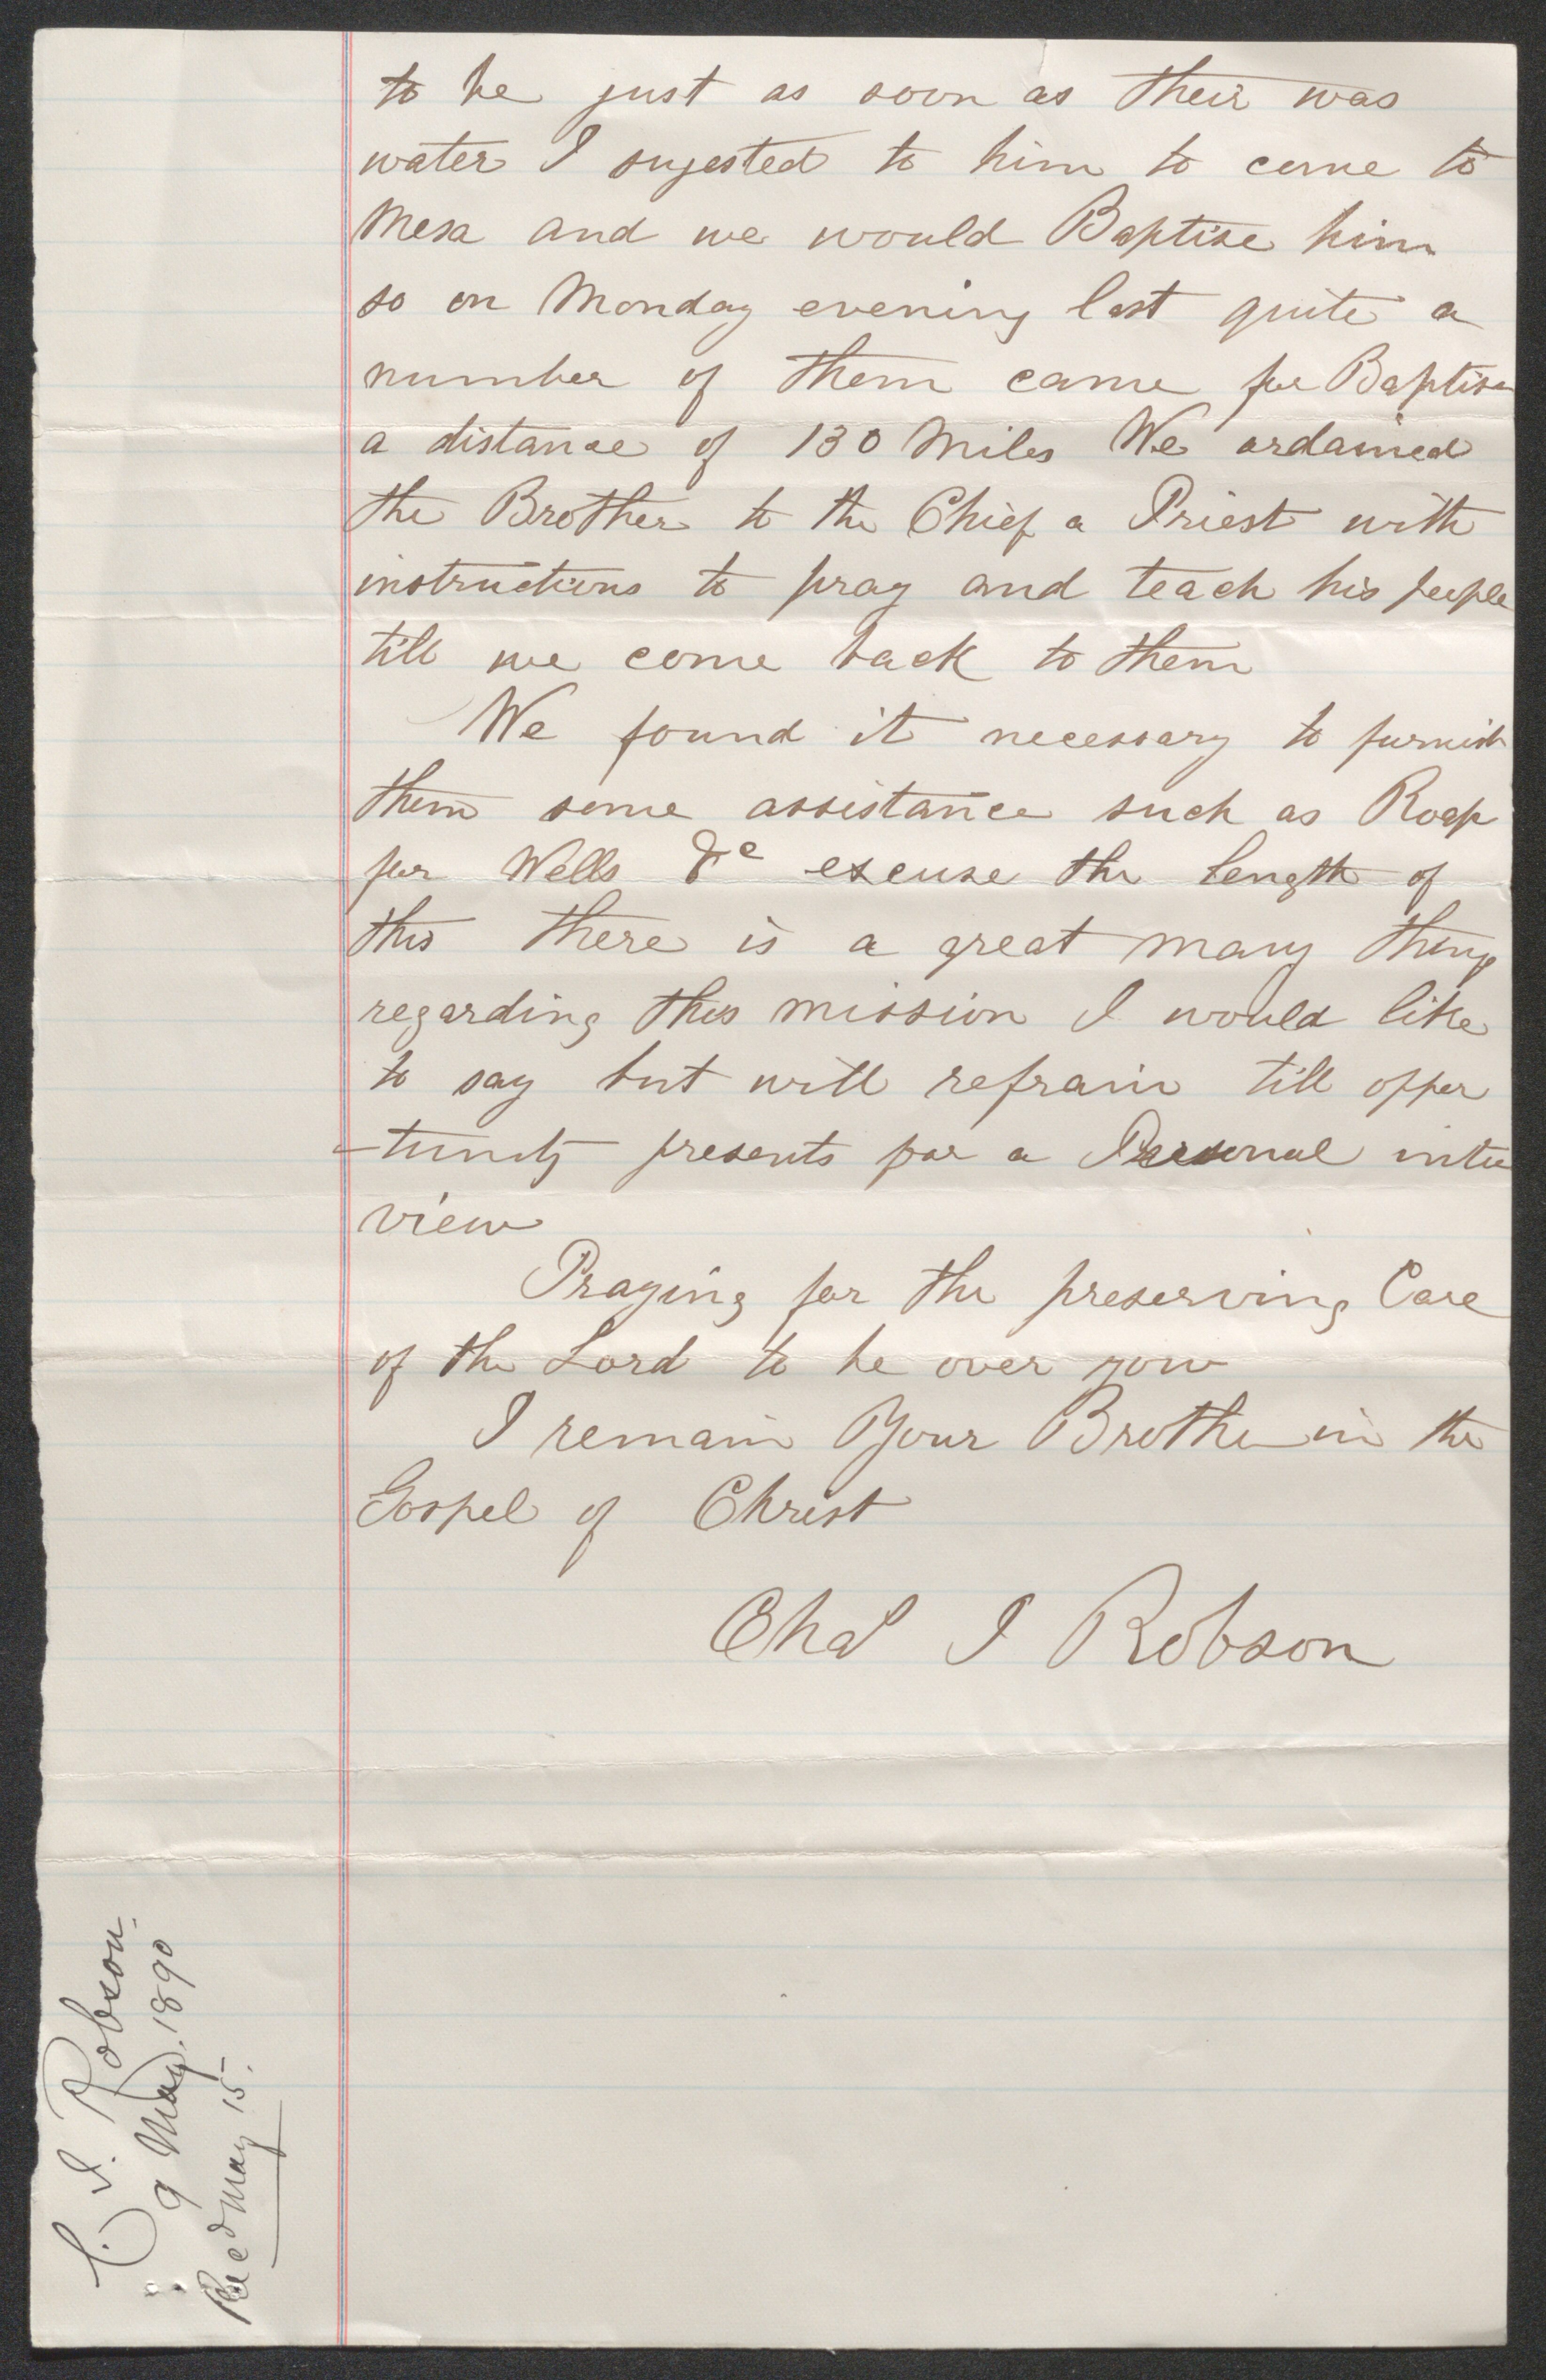 to be just as soon as their was
water I sugested to him to come to
Mesa and we would Baptise him
so on Monday evening last quite a
number of them came for Baptism
a distance of 130 Miles We ordained
the Brother to the Chief a Priest with
instructions to pray and teach his people
till we come back to them
We found it necessary to furnish
them some assistance such as Roap
for Wells &c excuse the length of
this there is a great many things
regarding this mission I would like
to say but will refrain till opper
-tunity presents for a Personal inter
view
Praying for the preserving Care
of the Lord to be over you
I remain Your Brother in the
Gospel of Christ
Chas I Robson
C. I. Robson.
9 May. 1890
Recd May 15.